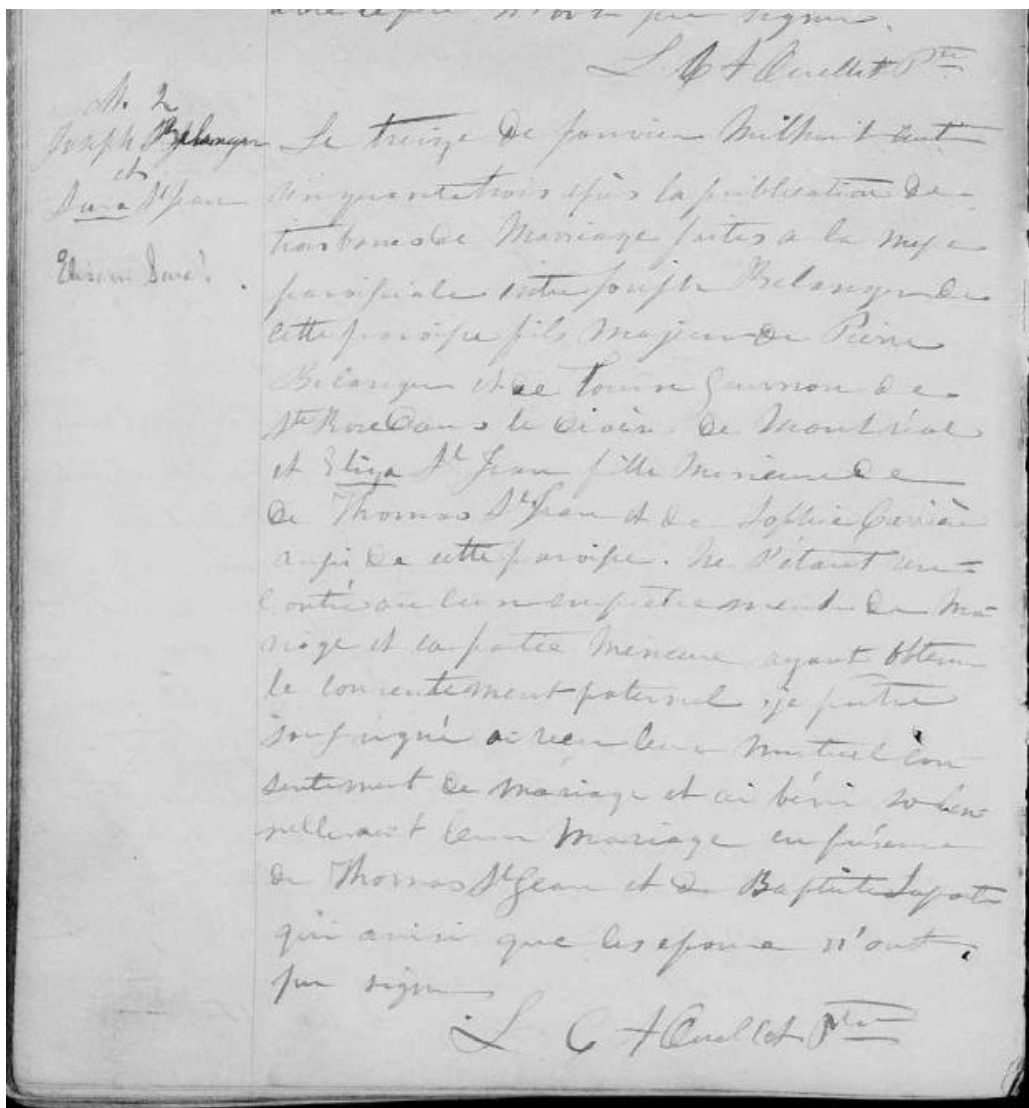 n'ont pu signer.
L C A Ouellet Ptre
M. 2
Joseph Bélanger
et
St Jean
Le treize de Janvier Mil huit cent
cinquante trois après la publication de
trois bans de Mariage faites a la messe
paroissiale entre Joseph Belanger de
cette paroisse fils Majeur de Pierre
Belanger et de Louise Gannon de
Ste Rose dans le diocèse de Montréal
et Eliza St Jean fille Mineure de
de Thomas St Jean et de Sophie Carrière
aussi de cette paroisse. Ne s'étant ren=
contré aucun empêchement de Ma-
riage et la partie Mineure ayant obtenu
le consentement paternel, je prêtre
soussigné ai reçu leur Mutuel con
sentement de Mariage et ai béni solen
nellement leur Mariage en présence
de Thomas St Jean et de Baptiste
qui ainsi que les époux n'ont
pu signer
L C A Ouellet Ptre